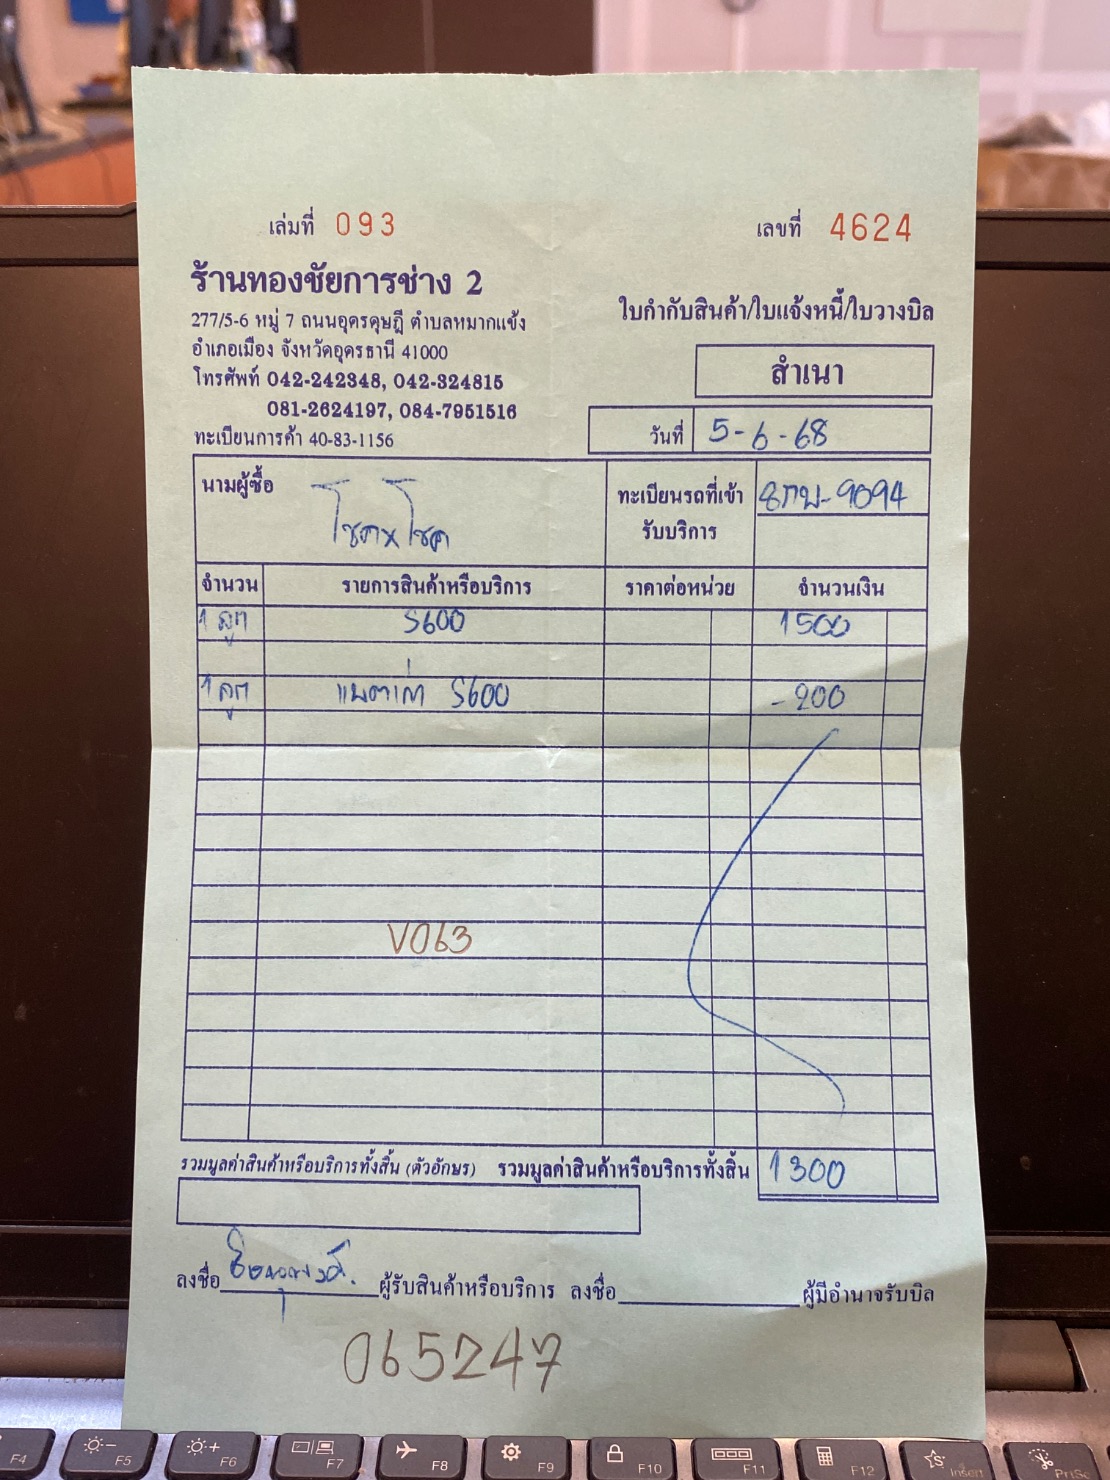 เล่มที่ 093 เลขที่ 4624
ร้านทองชัยการช่าง 2
277/5-6 หมู่ 7 ถนนอุดรดุษฎี ตำบลหมากแข้ง
อำเภอเมือง จังหวัดอุดรธานี 41000
โทรศัพท์ 042-242348, 042-324815
081-2624197, 084-7951516
ทะเบียนการค้า 40-83-1156
ใบกำกับสินค้า/ใบแจ้งหนี้/ใบวางบิล
สำเนา
วันที่ 5-6-68
นามผู้ซื้อ โชคxโชค
ทะเบียนรถที่เข้า
รับบริการ
9094
จำนวน รายการสินค้าหรือบริการ ราคาต่อหน่วย จำนวนเงิน
1 ลูก S600 1500
1 ลูก แบตเก่า S600 -200
V063
รวมมูลค่าสินค้าหรือบริการทั้งสิ้น (ตัวอักษร) รวมมูลค่าสินค้าหรือบริการทั้งสิ้น 1300
ลงชื่อ ผู้รับสินค้าหรือบริการ ลงชื่อ ผู้มีอำนาจรับบิล
065247
F4 F5 F6 F7 F8 F9 F10 F11 F12 Insert PrtSc